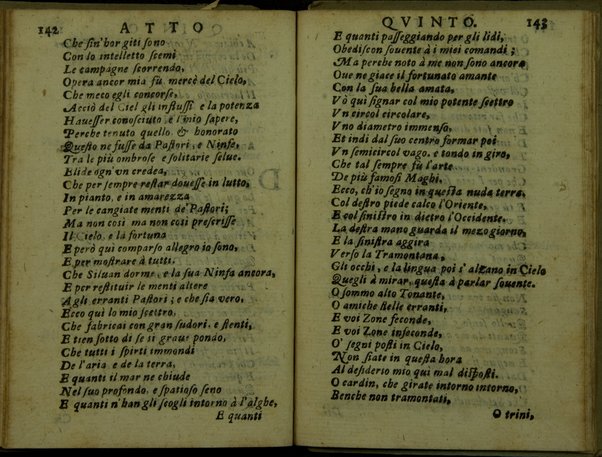 142 ATTO
Che sin'hor giti sono
Con lo intelletto scemi
Le campagne scorrendo,
Opera ancor mia fù, mercè del Cielo,
Che meco egli concorse,
Acciò del Ciel gli influssi, e la potenza
Hauesser conosciuto, e'l mio sapere,
Perche tenuto quello, & honorato
Questo ne fusse da Pastori, e Ninfe,
Tra le più ombrose e solitarie selue.
El'ide ogn'vn credea,
Che per sempre restar douesse in lutto,
In pianto, e in amarezza
Per le cangiate menti de' Pastori;
Ma non così ma non prescrisse
Il Cielo, e la fortuna
E però quì comparso allegro io sono,
E per mostrare à tutti.
Che Siluan dorme, e la sua Ninfa ancora,
E per restituir le menti altere
Agli erranti Pastori; e che sia vero,
Ecco quì lo mio scettro,
Che fabricai con gran sudori, e stenti,
E tien sotto di se il graue pondo,
Che tutti i spirti immondi
De l'aria, e de la terra,
E quanti il mar ne chiude
Nel suo profondo, e spatioso seno
E quanti n'han gli scogli intorno à l'alghe,
E quanti
QVINTO. 143
E quanti passeggiando per gli lidi,
Obediscon souente à i miei comandi;
Ma perche noto à me non sono ancora
Oue ne giace il fortunato amante
Con la sua bella amata,
Vò quì signar col mio potente scettro
Vn circol circolare,
Vno diametro immenso,
Et indi dal suo centro formar poi
Vn semicircol vago, e tondo in giro,
Che tal sempre fù l'arte
De più famosi Maghi.
Ecco, ch'io segno in questa nuda terra,
Col destro piede calco l'Oriente,
E col sinistro in dietro l'Occidente.
La destra mano guarda il mezogiorno,
E la sinistra aggira
Verso la Tramontana,
Gli occhi, e la lingua poi s'alzano in Cielo
Quegli à mirar, questa à parlar souente.
O sommo alto Tonante,
O amiche stelle erranti,
E voi Zone feconde,
E voi Zone infeconde,
O' segni posti in Cielo,
Non siate in questa hora
Al desiderio mio quì mal disposti.
O cardin, che girate intorno intorno,
Benche non tramontati,
O trini,